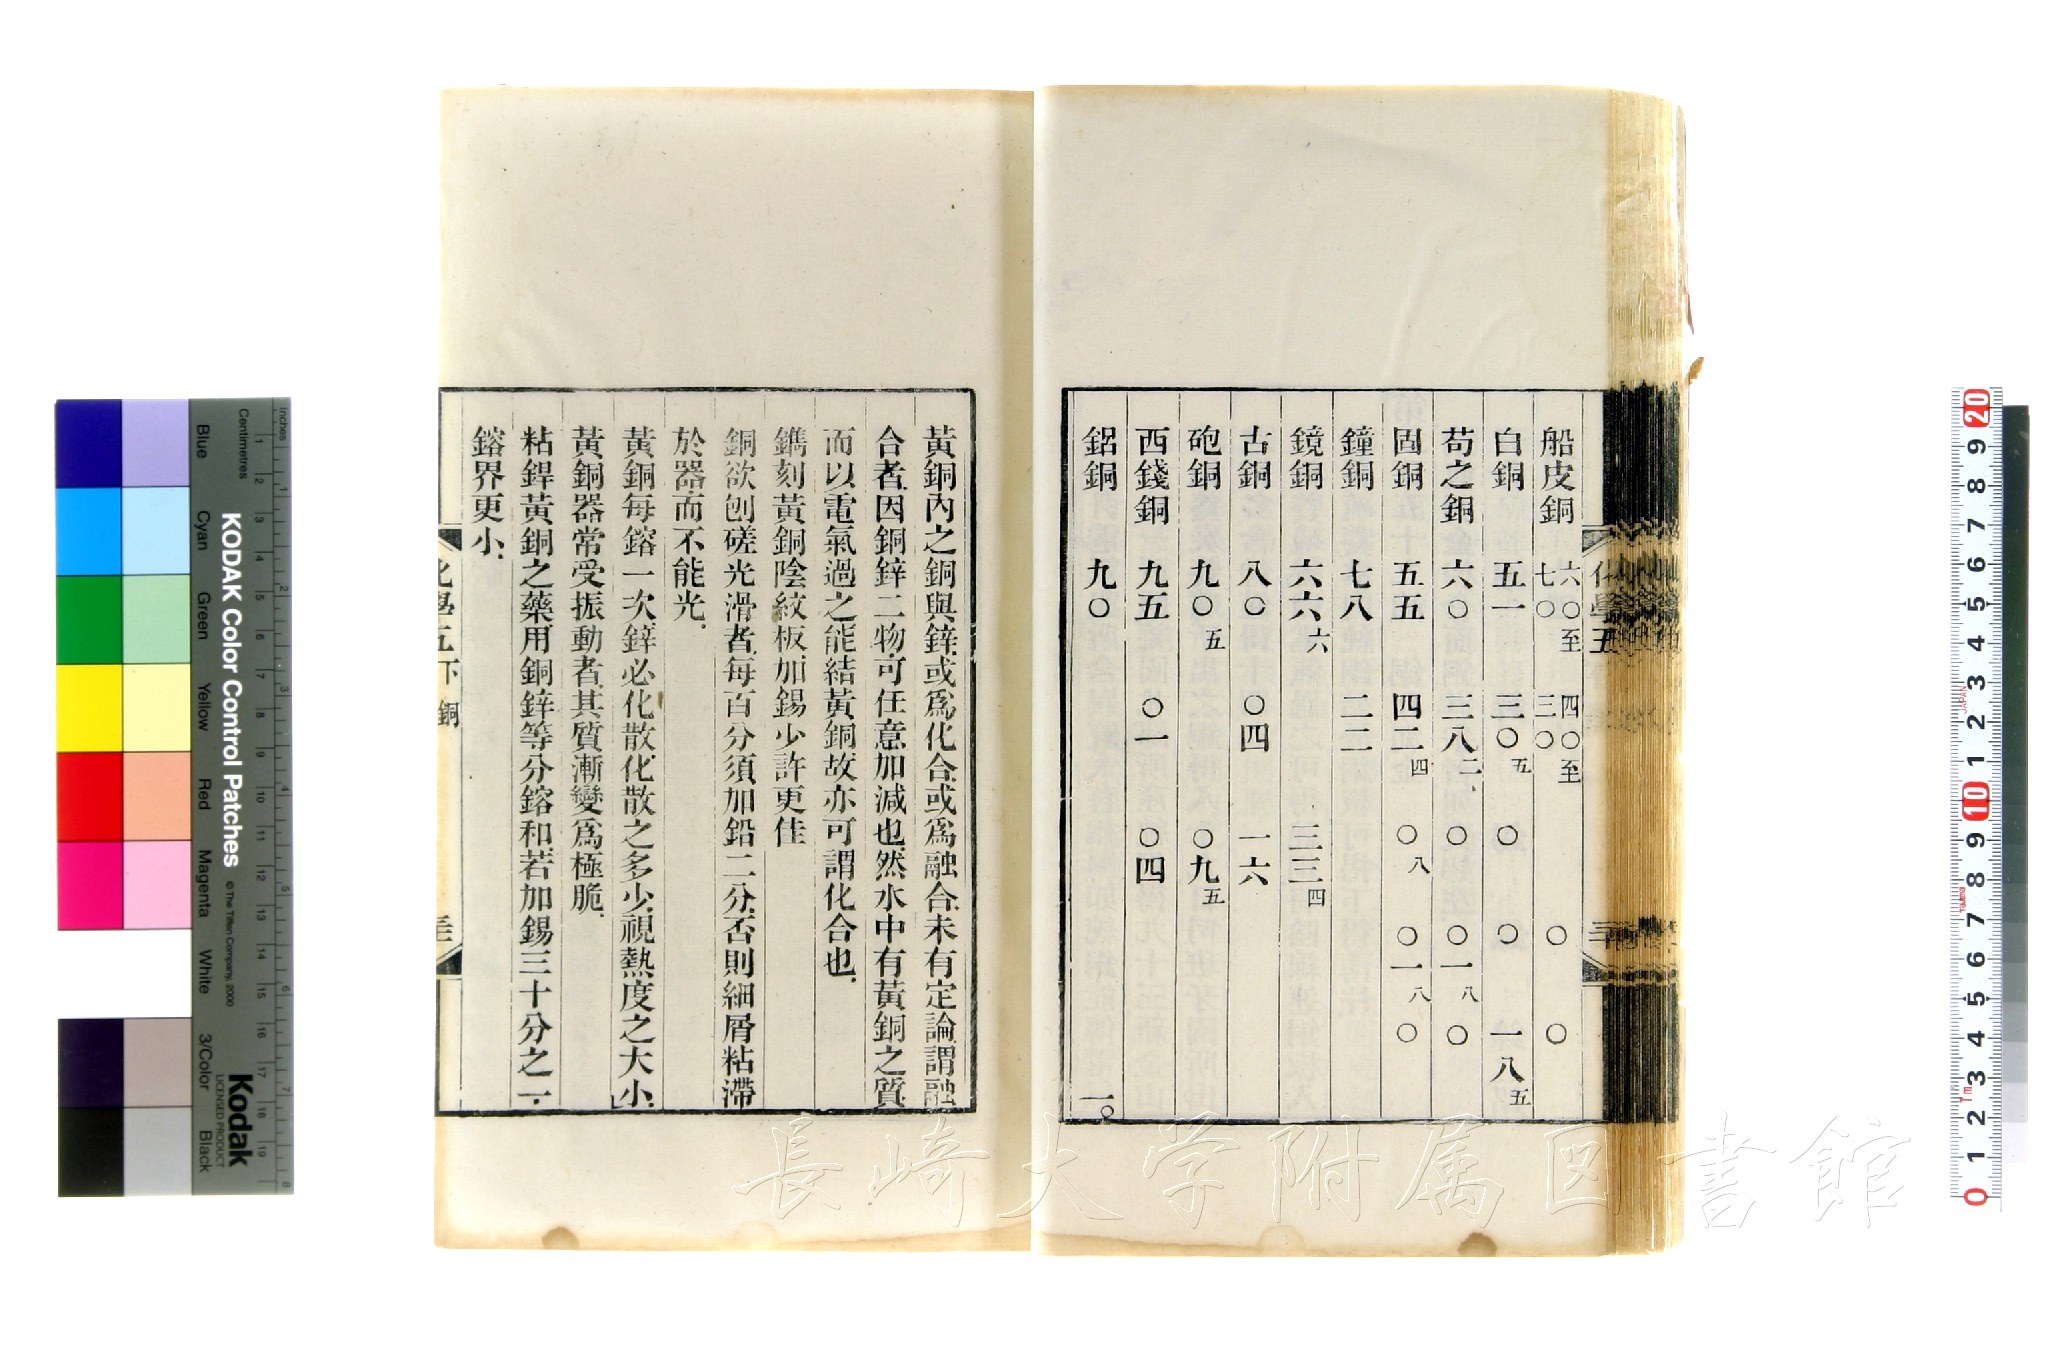 船皮銅 六〇至七〇 四〇至三〇 〇 〇
白銅 五一 三〇五 〇 〇 一八五
苟之銅 六〇 三八二 〇 〇一八 〇
固銅 五五 四二四 〇八 〇一八 〇
鐘銅 七八 二二
鏡銅 六六六 三三四
古銅 八〇 〇四 一六
砲銅 九〇五 〇九五
西錢銅 九五 〇一 〇四
鋁銅 九〇 一〇
黃銅內之銅與鋅或爲化合或爲融合未有定論謂融
合者因銅鋅二物可任意加減也然水中有黃銅之質
而以電氣過之能結黃銅故亦可謂化合也
鐫刻黃銅陰紋板加錫少許更佳
銅欲刨磋光滑者每百分須加鉛二分否則細屑粘滯
於器而不能光
黃銅每鎔一次鋅必化散化散之多少視熱度之大小
黃銅器常受振動者其質漸變爲極脆
粘銲黃銅之藥用銅鋅等分鎔和若加錫三十分之一
鎔界更小
化學五下 銅
長崎大学附属図書館
KODAK Color Control Patches
© The Tiffen Company, 2000
Kodak
LICENSED PRODUCT
Inches
Centimetres
Blue
Cyan
Green
Yellow
Red
Magenta
White
3/Color
Black